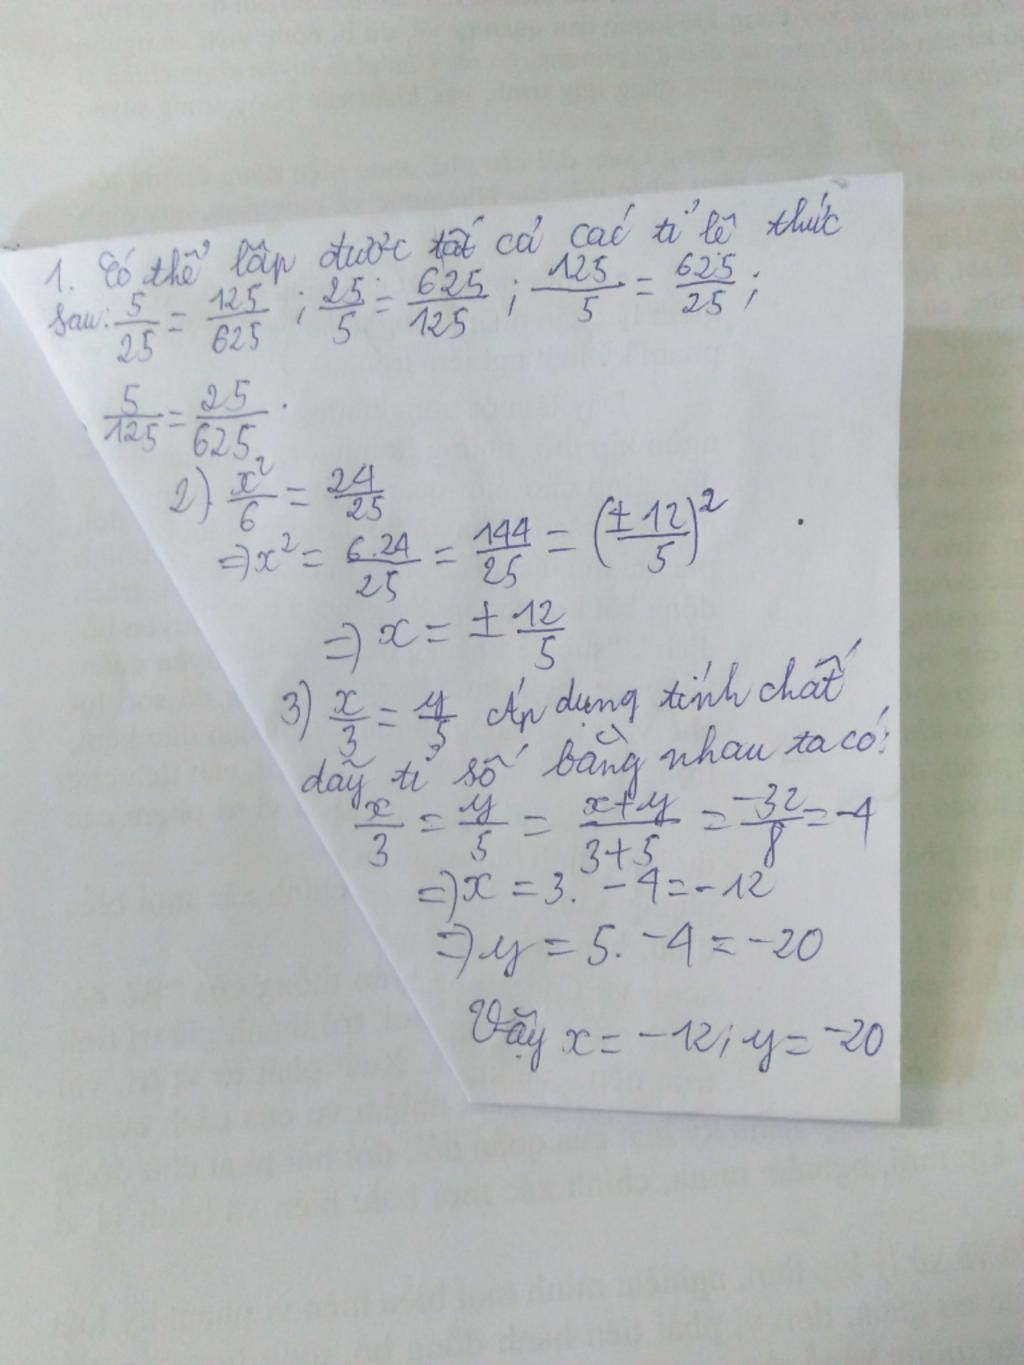 1. Có thể lập được tất cả các tỉ lệ thức
sau: 5/25 = 125/625 ; 25/5 = 625/125 ; 125/5 = 625/25 ;
5/125 = 25/625 .
2) x²/6 = 24/25
=> x² = 6.24/25 = 144/25 = (±12/5)²
=> x = ± 12/5
3) x/3 = y/5 Áp dụng tính chất
dãy tỉ số bằng nhau ta có:
x/3 = y/5 = x+y/3+5 = -32/8 = -4
=> x = 3. -4 = -12
=> y = 5. -4 = -20
Vậy x = -12; y = -20